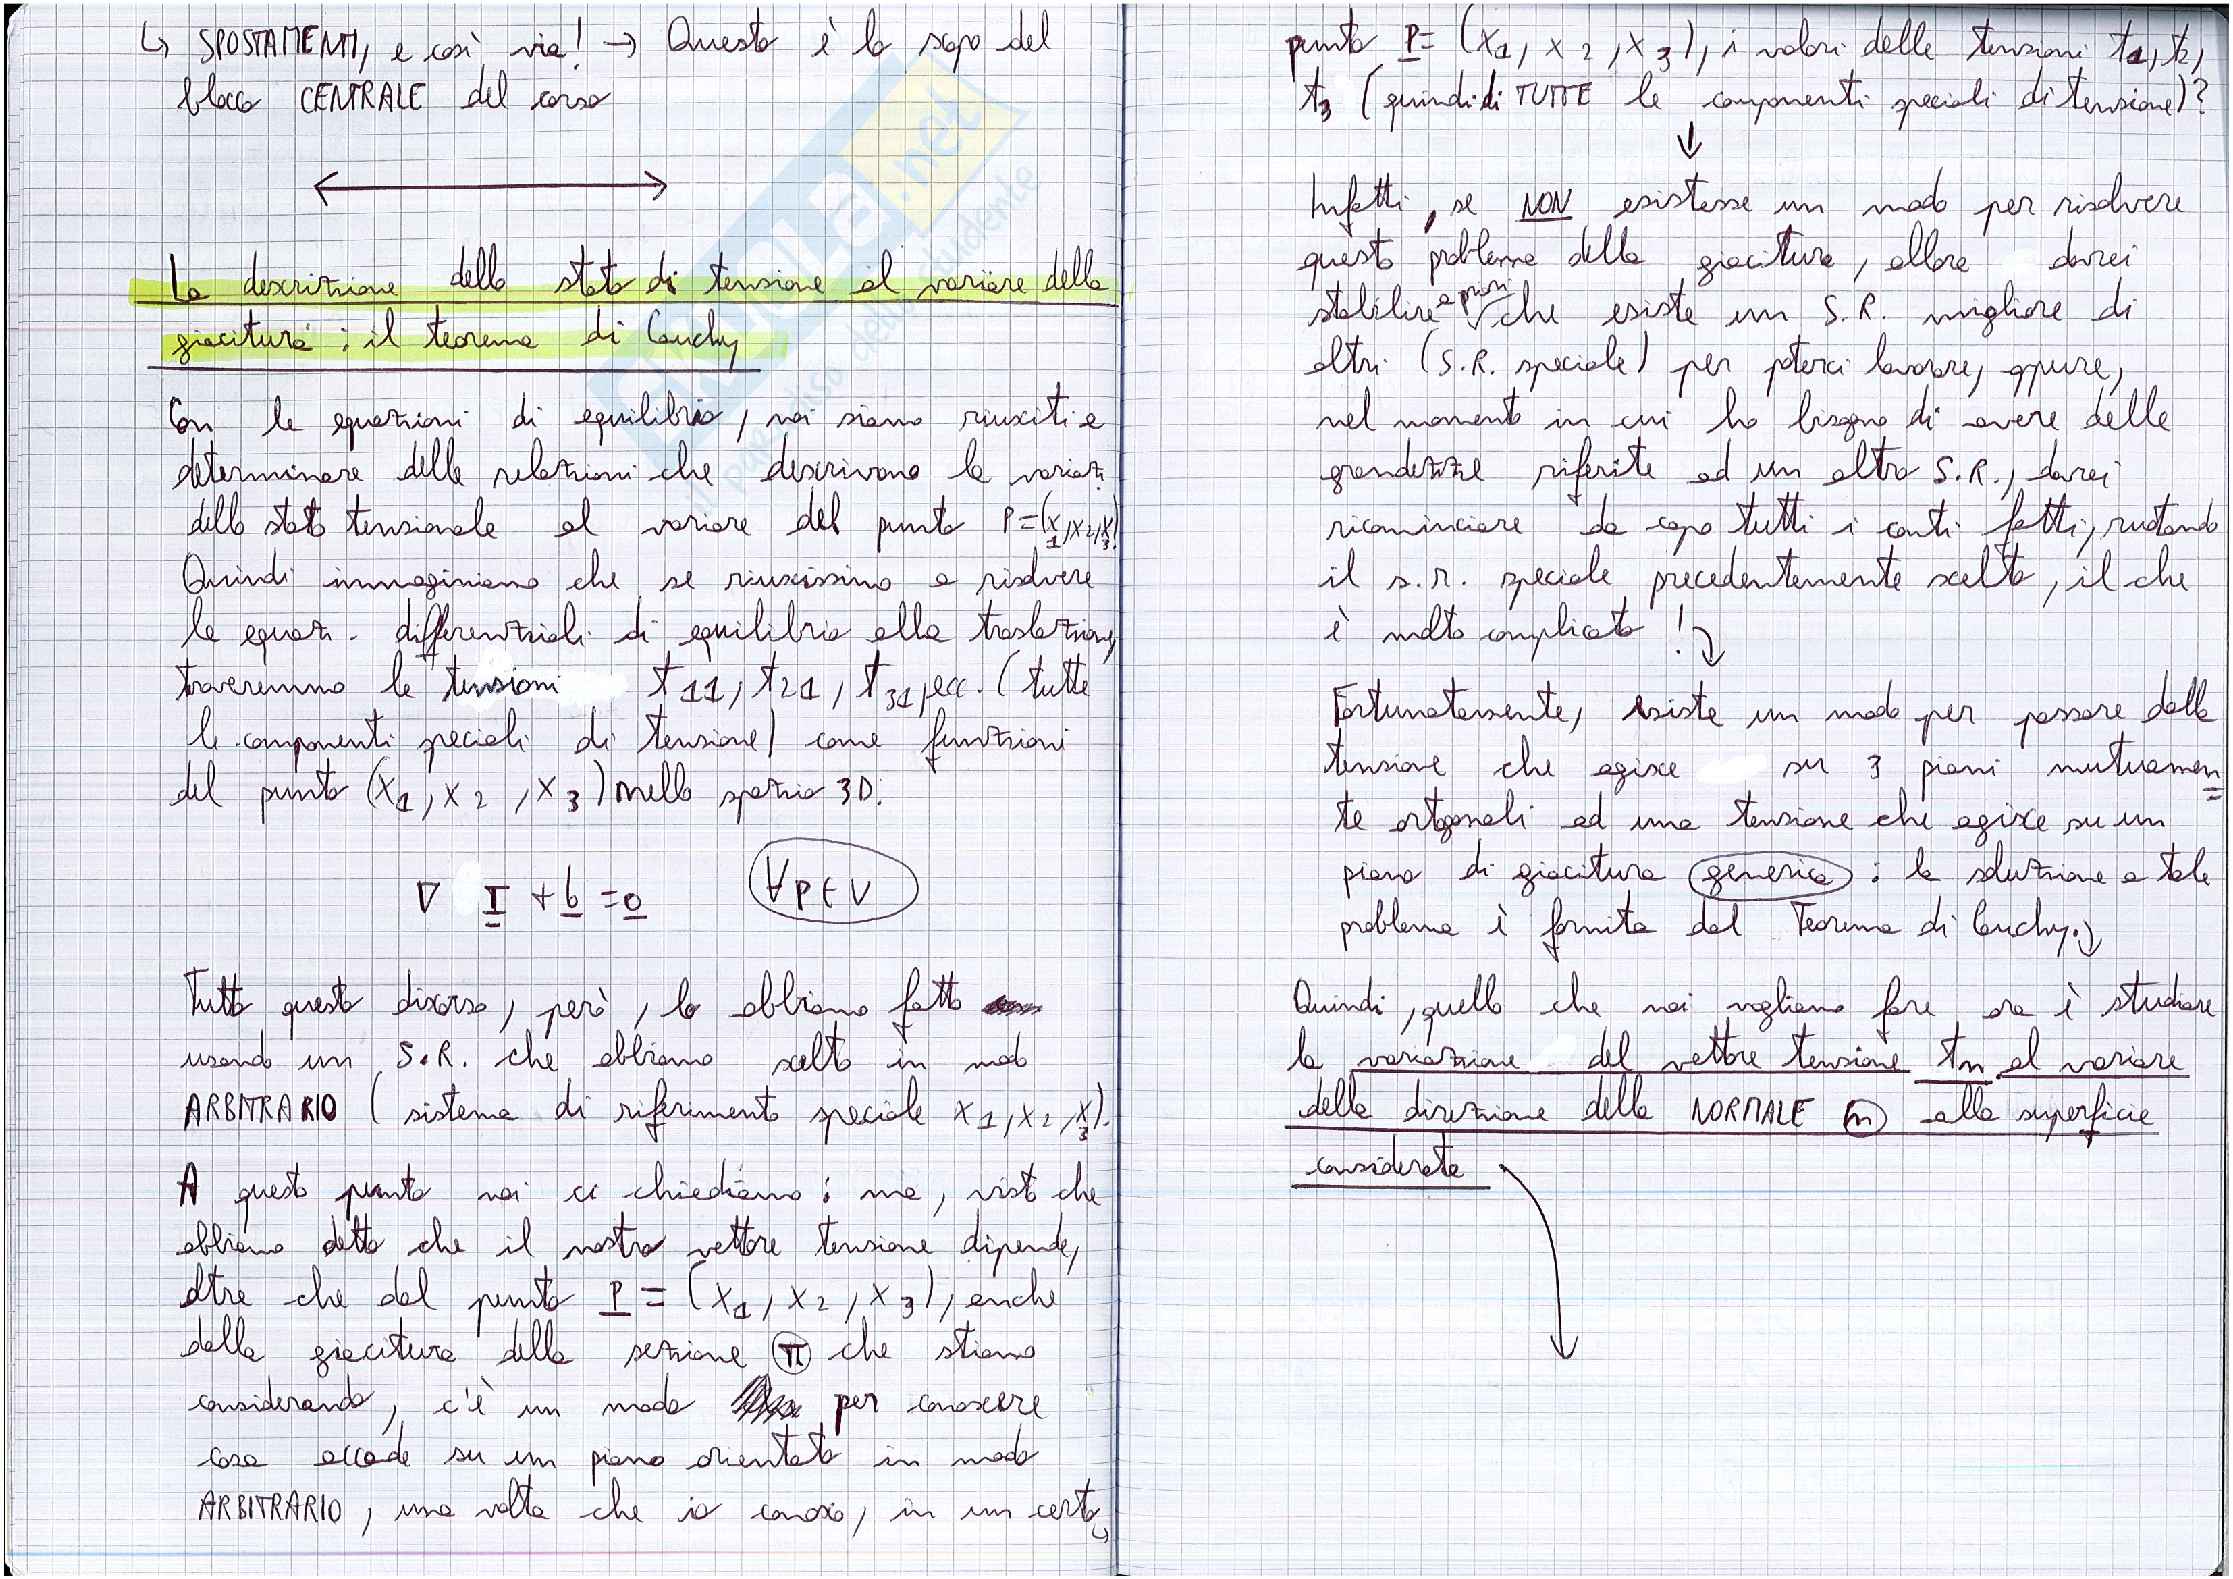 ↳ SPOSTAMENTI, e così via! → Questo è lo scopo del
blocco CENTRALE del corso
La descrizione dello stato di tensione al variare della
giacitura: il teorema di Cauchy
Con le equazioni di equilibrio, noi siamo riusciti a
determinare delle relazioni che descrivono la variaz.
dello stato tensionale al variare del punto P=(x1,x2,x3).
Quindi immaginiamo che se riuscissimo a risolvere
le equaz. differenziali di equilibrio alla traslazione,
troveremmo le tensioni t11, t21, t31, ecc. (tutte
le componenti speciali di tensione) come funzioni
del punto (x1, x2, x3) nello spazio 3D.
∇ T + b = 0 ∀P∈V
Tutto questo discorso, però, lo abbiamo fatto
usando un S.R. che abbiamo scelto in modo
ARBITRARIO (sistema di riferimento speciale x1, x2, x3).
A questo punto noi ci chiediamo: ma, visto che
abbiamo detto che il nostro vettore tensione dipende,
oltre che dal punto P = (x1, x2, x3), anche
dalla giacitura della sezione π che stiamo
considerando, c'è un modo per conoscere
cosa accade su un piano orientato in modo
ARBITRARIO, una volta che io conosco, in un certo
punto P = (x1, x2, x3), i valori delle tensioni t1, t2,
t3 (quindi di TUTTE le componenti speciali di tensione)?
↓
Infatti, se NON esistesse un modo per risolvere
questo problema della giacitura, allora dovrei
stabilire a priori che esiste un S.R. migliore di
altri (S.R. speciale) per poterci lavorare, oppure,
nel momento in cui ho bisogno di avere delle
grandezze riferite ad un altro S.R., dovrei
ricominciare da capo tutti i conti fatti, ruotando
il s.r. speciale precedentemente scelto, il che
è molto complicato!
Fortunatamente, esiste un modo per passare dalla
tensione che agisce su 3 piani mutuamen
te ortogonali ad una tensione che agisce su un
piano di giacitura generica: la soluzione a tale
problema è fornita dal Teorema di Cauchy.
Quindi, quello che noi vogliamo fare ora è studiare
la variazione del vettore tensione tn al variare
della direzione della NORMALE n alla superficie
considerata